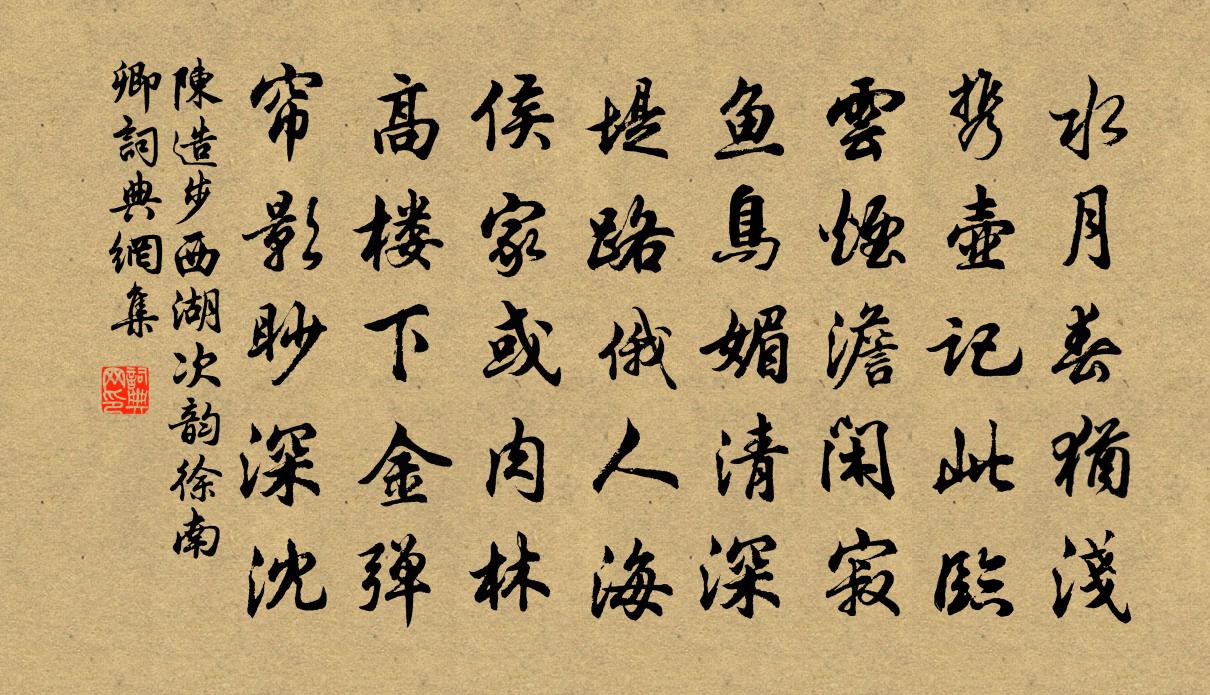 水月春猶淺
携壺記此臨
雲煙澹闲寂
鱼鳥媚清深
堤路俄人海
侯家或肉林
髙楼下金弹
帘影眇深沈
陳造步西湖次韵徐南
卿詞典網集
詞典网印